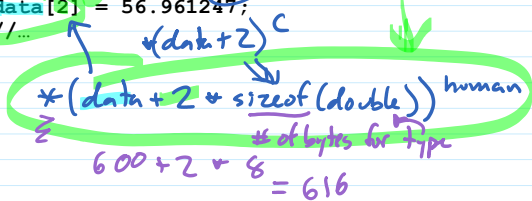 data[2] = 56.961247;
//…
*(data+2) C
*(data + 2 * sizeof(double)) human
# of bytes for type
600 + 2 * 8
= 616